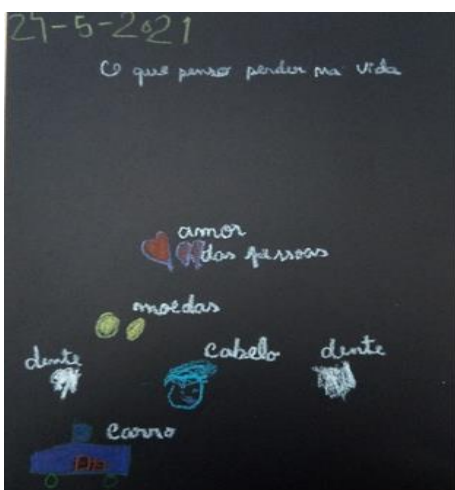 24-5-2021
O que penso perder na vida
amor
das pessoas
moedas
dente
cabelo
dente
carro